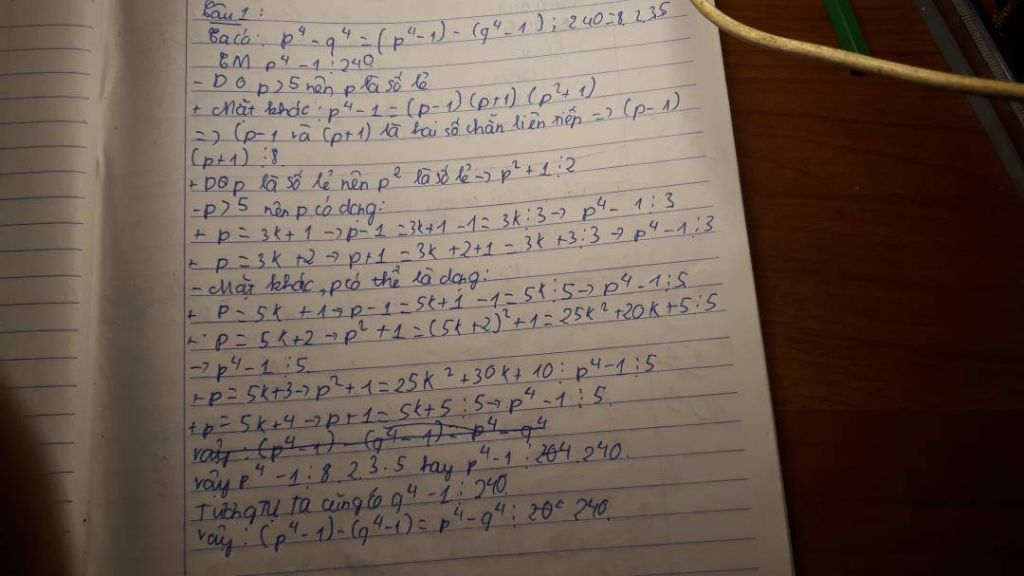 Câu 1:
Ta có: p⁴ - q⁴ = (p⁴-1) - (q⁴-1); 240=8.2.3.5
CM p⁴-1⋮240
- Do p>5 nên p là số lẻ
+ Mặt khác: p⁴-1 = (p-1)(p+1)(p²+1)
=> (p-1 và (p+1) là hai số chẵn liên tiếp => (p-1)
(p+1)⋮8
+ Do p là số lẻ nên p² là số lẻ → p²+1⋮2
-p>5 nên p có dạng:
+ p = 3k+1 → p-1 = 3k+1-1 = 3k⋮3 → p⁴-1⋮3
+ p = 3k+2 → p+1 = 3k+2+1 = 3k+3⋮3 → p⁴-1⋮3
- Mặt khác, p có thể là dạng:
+ P = 5k+1→ p-1 = 5k+1-1 = 5k⋮5 → p⁴-1⋮5
+ p = 5k+2 → p²+1 = (5k+2)²+1 = 25k²+20k+5⋮5
→ p⁴-1⋮5
+ p = 5k+3 → p²+1 = 25k²+30k+10⋮ p⁴-1⋮5
+ p = 5k+4 → p+1 = 5k+5⋮5 → p⁴-1⋮5
vậy: (p⁴-1) - (q⁴-1) = p⁴-q⁴
vậy p⁴-1⋮8.2.3.5 hay p⁴-1⋮204 240
Tương tự ta cũng có q⁴-1⋮240
vậy: (p⁴-1)-(q⁴-1) = p⁴-q⁴⋮ 240